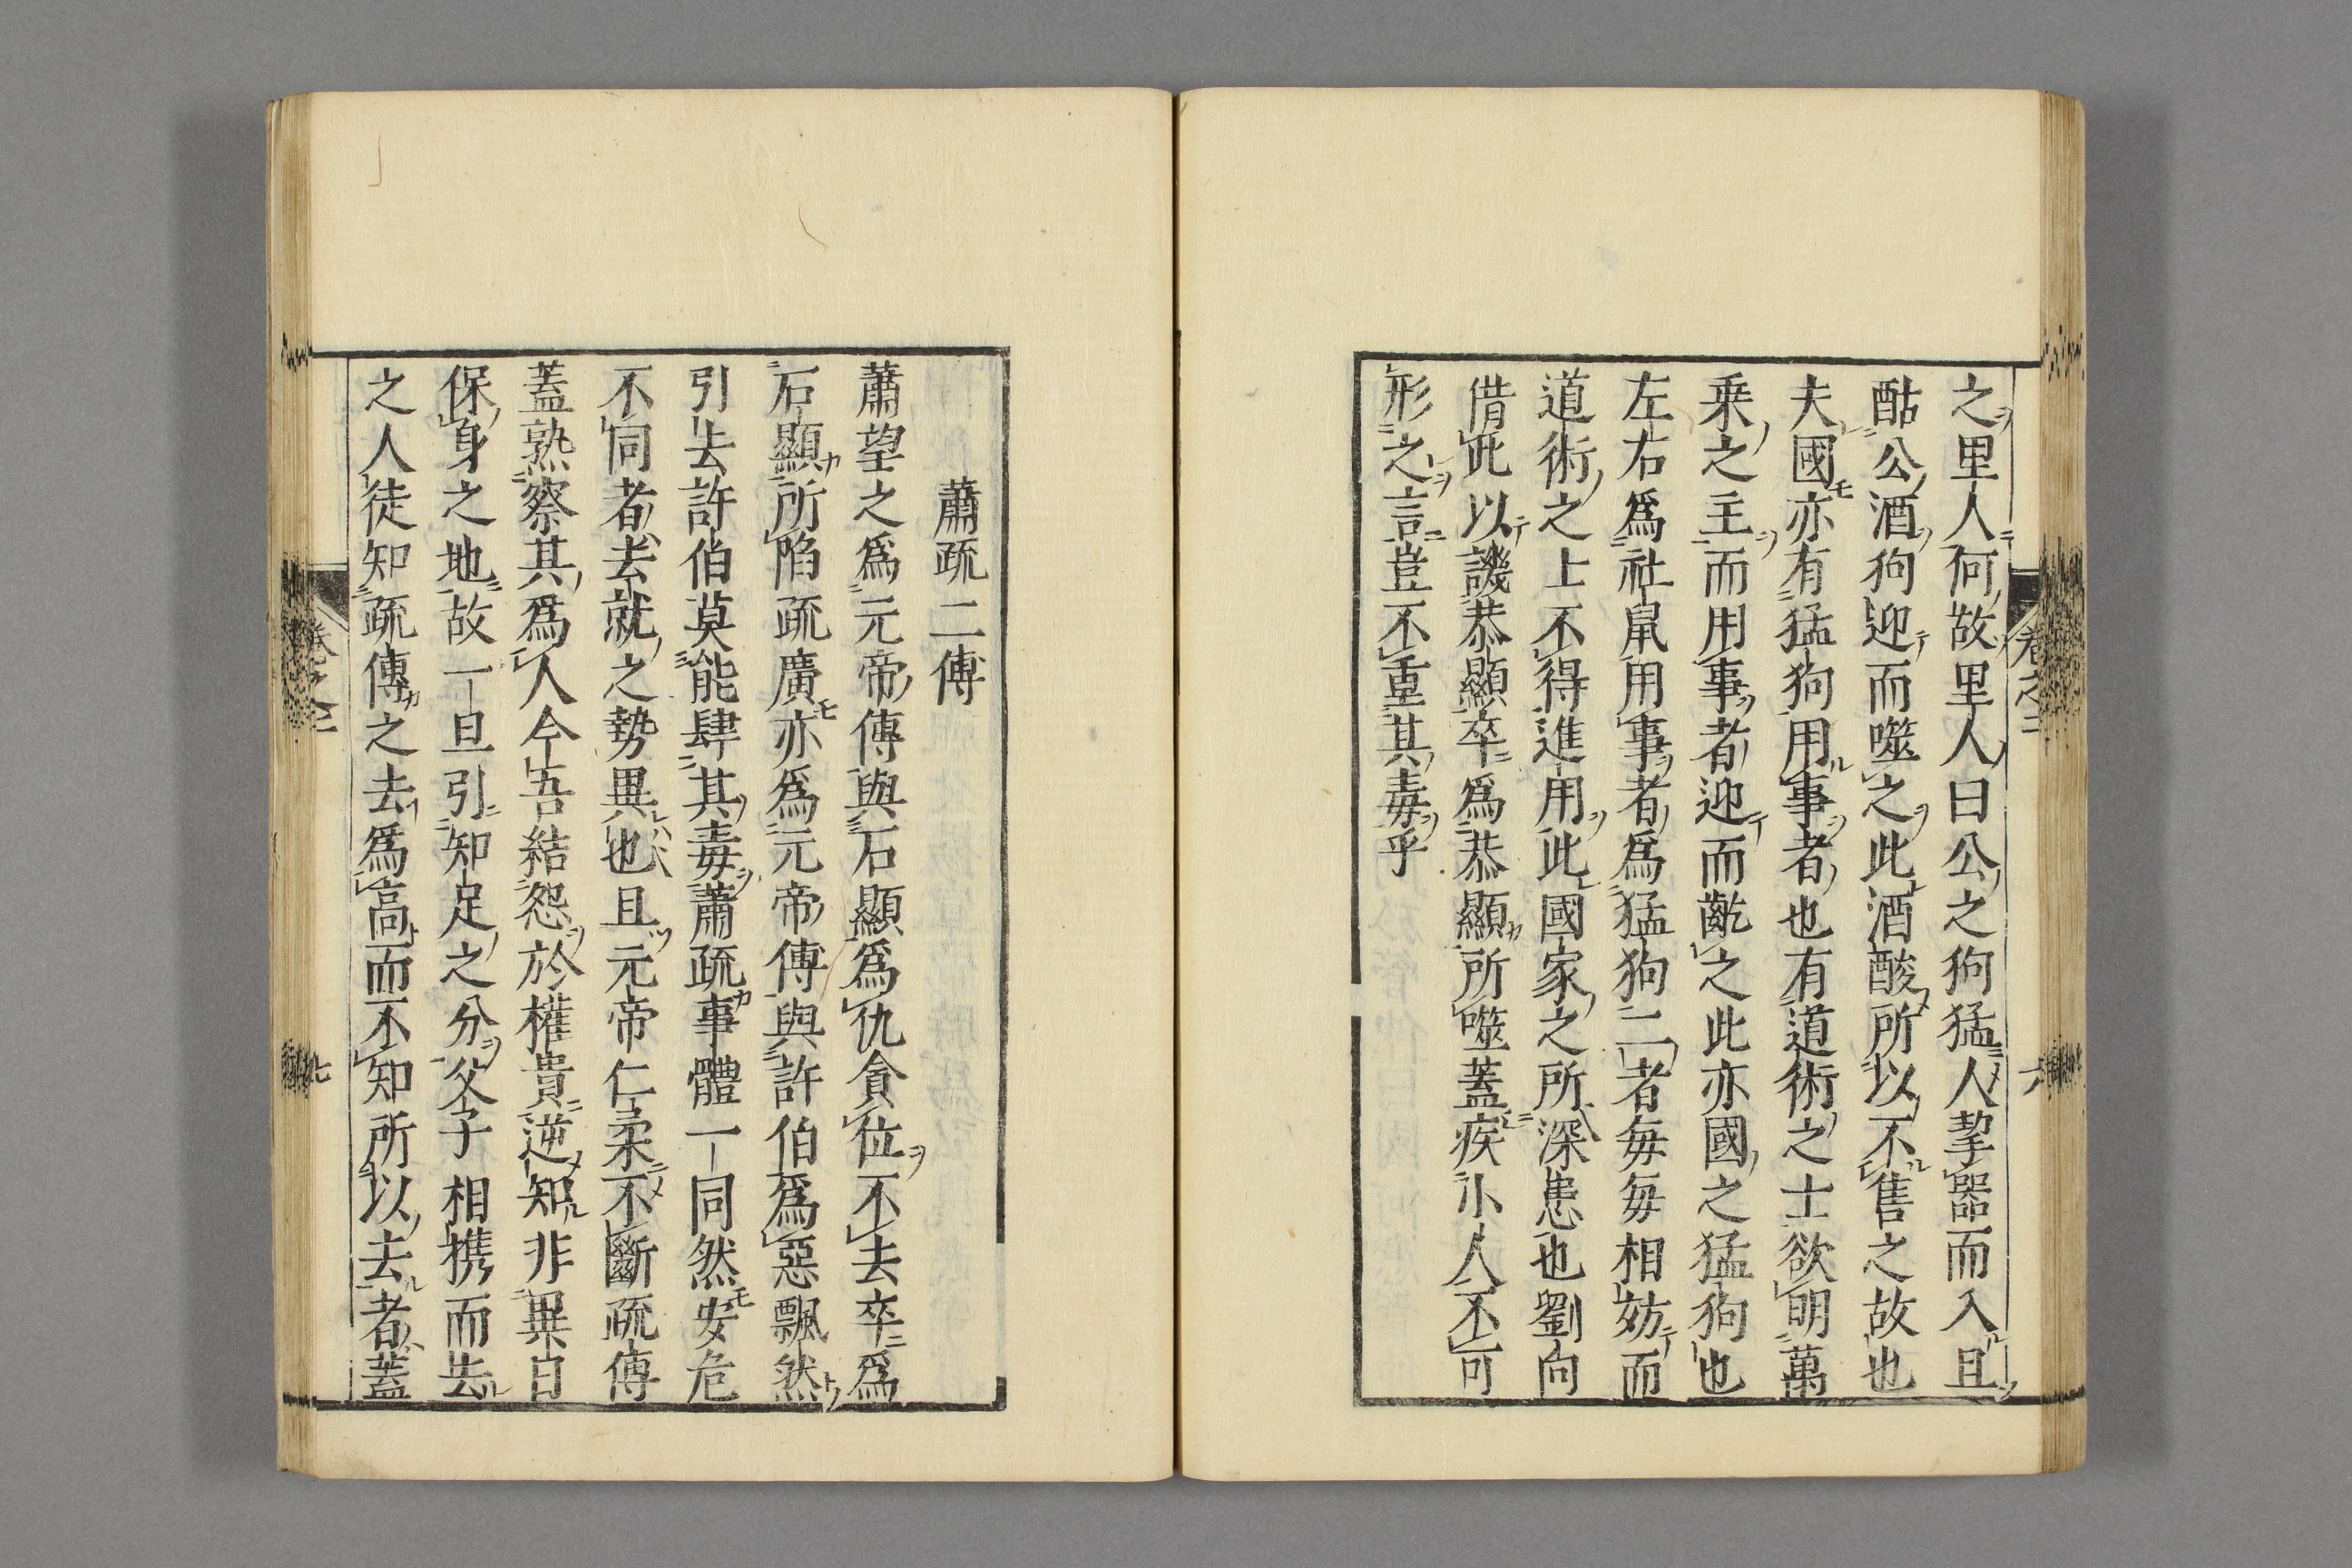 之里人何故里人曰公之狗猛人挈器而入且
酤公酒狗迎而噬之此酒酸所以不售之故也
夫國亦有猛狗用事者也有道術之士欲明萬
乗之主而用事者迎而齕之此亦國之猛狗也
左右爲社鼠用事者爲猛狗二者毎毎相妨而
道術之士不得進用此國家之所深患也劉向
借此以譏恭顯卒爲恭顯所噬蓋疾小人不可
形之言豈不重其毒乎
蕭疏二傅
蕭望之爲元帝傅與石顯爲仇貪位不去卒爲
石顯所陷疏廣亦爲元帝傅與許伯爲惡飄然
引去許伯莫能肆其毒蕭疏事體一同然安危
不同者去就之勢異也且元帝仁柔不斷疏傅
蓋熟察其爲人今吾結怨於權貴逆知非異日
保身之地故一旦引知足之分父子相携而去
之人徒知疏傅之去爲高而不知所以去者蓋